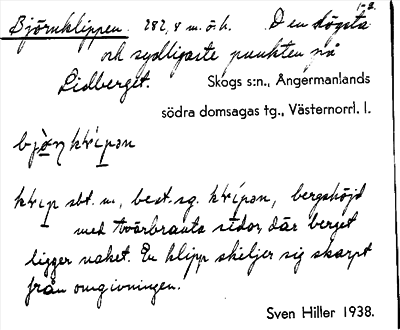 Björnklippen. 282,8 m.ö.h. Den högsta
och sydligaste punkten på
Lidberget. Skogs s:n., Ångermanlands
södra domsagas tg., Västernorrl. l.
sbt. m., best. sg. bergshöjd
med tvärbranta sidor, där berget
ligger naket. En klipp skiljer sig skarpt
från omgivningen.
Sven Hiller 1938.